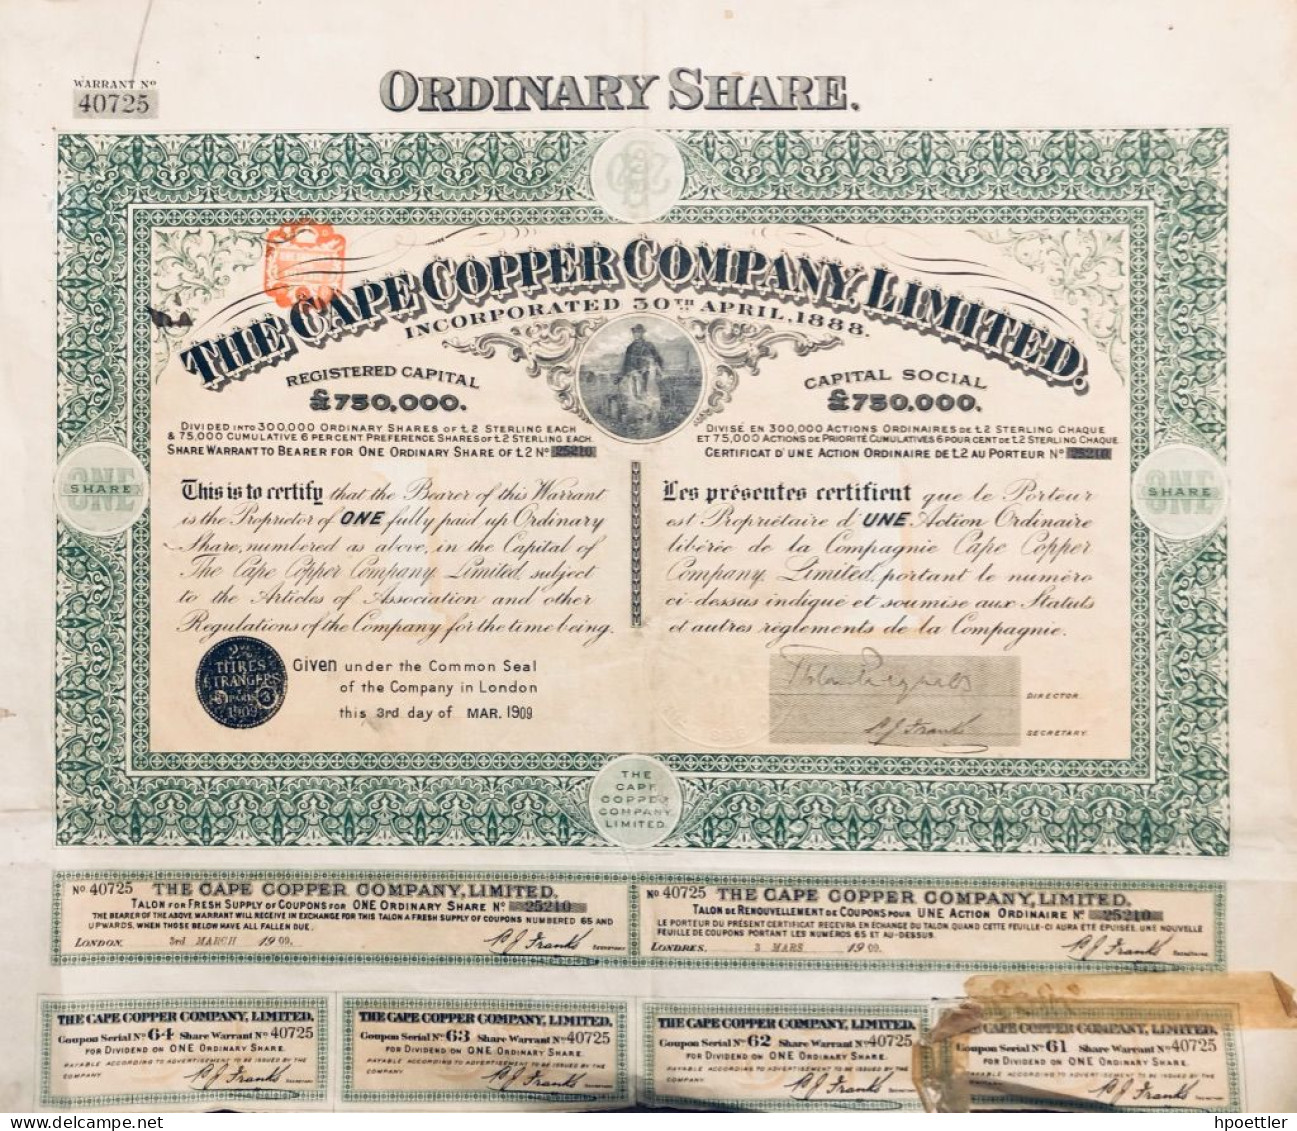 WARRANT Nº
40725
ORDINARY SHARE.
THE CAPE COPPER COMPANY, LIMITED.
INCORPORATED 30TH APRIL, 1888.
REGISTERED CAPITAL
£750,000.
DIVIDED INTO 300,000 ORDINARY SHARES OF £2 STERLING EACH
& 75,000 CUMULATIVE 6 PERCENT. PREFERENCE SHARES OF £2 STERLING EACH.
SHARE WARRANT TO BEARER FOR ONE ORDINARY SHARE OF £2 Nº 25210
CAPITAL SOCIAL
£750,000.
DIVISÉ EN 300,000 ACTIONS ORDINAIRES DE £2 STERLING CHAQUE
ET 75,000 ACTIONS DE PRIORITÉ CUMULATIVES 6 POUR CENT DE £2 STERLING CHAQUE
CERTIFICAT D'UNE ACTION ORDINAIRE DE £2 AU PORTEUR Nº 25210
ONE
SHARE
ONE
SHARE
This is to certify that the Bearer of this Warrant
is the Proprietor of ONE fully paid up Ordinary
Share, numbered as above, in the Capital of
The Cape Copper Company, Limited, subject
to the Articles of Association and other
Regulations of the Company for the time being.
Les présentes certifient que le Porteur
est Propriétaire d'UNE Action Ordinaire
libérée de la Compagnie Cape Copper
Company, Limited, portant le numéro
ci-dessus indiqué et soumise aux Statuts
et autres règlements de la Compagnie.
TITRES
ETRANGERS
1909
Given under the Common Seal
of the Company in London
this 3rd day of MAR. 1909
DIRECTOR.
A J Franks
SECRETARY.
THE
CAPE
COPPER
COMPANY
LIMITED.
Nº 40725 THE CAPE COPPER COMPANY, LIMITED.
TALON FOR FRESH SUPPLY OF COUPONS FOR ONE ORDINARY SHARE Nº 25210
THE BEARER OF THE ABOVE WARRANT WILL RECEIVE IN EXCHANGE FOR THIS TALON A FRESH SUPPLY OF COUPONS NUMBERED 65 AND
UPWARDS, WHEN THOSE BELOW HAVE ALL FALLEN DUE.
LONDON. 3rd MARCH 1909. A J Franks SECRETARY.
Nº 40725 THE CAPE COPPER COMPANY, LIMITED.
TALON DE RENOUVELLEMENT DE COUPONS POUR UNE ACTION ORDINAIRE Nº 25210
LE PORTEUR DU PRÉSENT CERTIFICAT RECEVRA EN ÉCHANGE DU TALON QUAND CETTE FEUILLE-CI AURA ÉTÉ ÉPUISÉE, UNE NOUVELLE
FEUILLE DE COUPONS PORTANT LES NUMÉROS 65 ET AU-DESSUS.
LONDRES. 3 MARS 1909. A J Franks
THE CAPE COPPER COMPANY, LIMITED.
Coupon Serial Nº 64 Share Warrant Nº 40725
FOR DIVIDEND ON ONE ORDINARY SHARE.
PAYABLE ACCORDING TO ADVERTISEMENT TO BE ISSUED BY THE
COMPANY. A J Franks SECRETARY
THE CAPE COPPER COMPANY, LIMITED.
Coupon Serial Nº 63 Share Warrant Nº 40725
FOR DIVIDEND ON ONE ORDINARY SHARE.
PAYABLE ACCORDING TO ADVERTISEMENT TO BE ISSUED BY THE
COMPANY. A J Franks SECRETARY
THE CAPE COPPER COMPANY, LIMITED.
Coupon Serial Nº 62 Share Warrant Nº 40725
FOR DIVIDEND ON ONE ORDINARY SHARE.
PAYABLE ACCORDING TO ADVERTISEMENT TO BE ISSUED BY THE
COMPANY. A J Franks
CAPE COPPER COMPANY, LIMITED.
Coupon Serial Nº 61 Share Warrant Nº 40725
FOR DIVIDEND ON ONE ORDINARY SHARE.
PAYABLE ACCORDING TO ADVERTISEMENT TO BE ISSUED BY THE
COMPANY. A J Franks SECRETARY
hpoettler